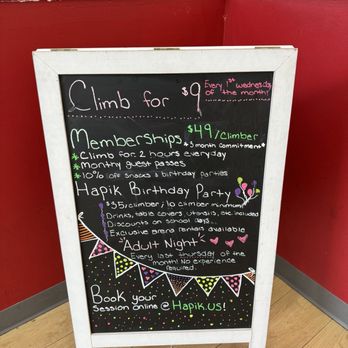 Climb for $9 Every 1st wednesday
of the month!
Memberships $49/climber
*3 month commitment*
*Climb for 2 hours everyday
*Monthy guest passes
*10% off snacks & birthday parties
Hapik Birthday Party
$35/climber, 10 climber minimum
Drinks, table covers, utensils, etc. included
Discounts on school days.
Exclusive arena rentals available
"Adult Night"
Every last thursday of the
month! No experience
required.
Book your
Session online @ Hapik.us!